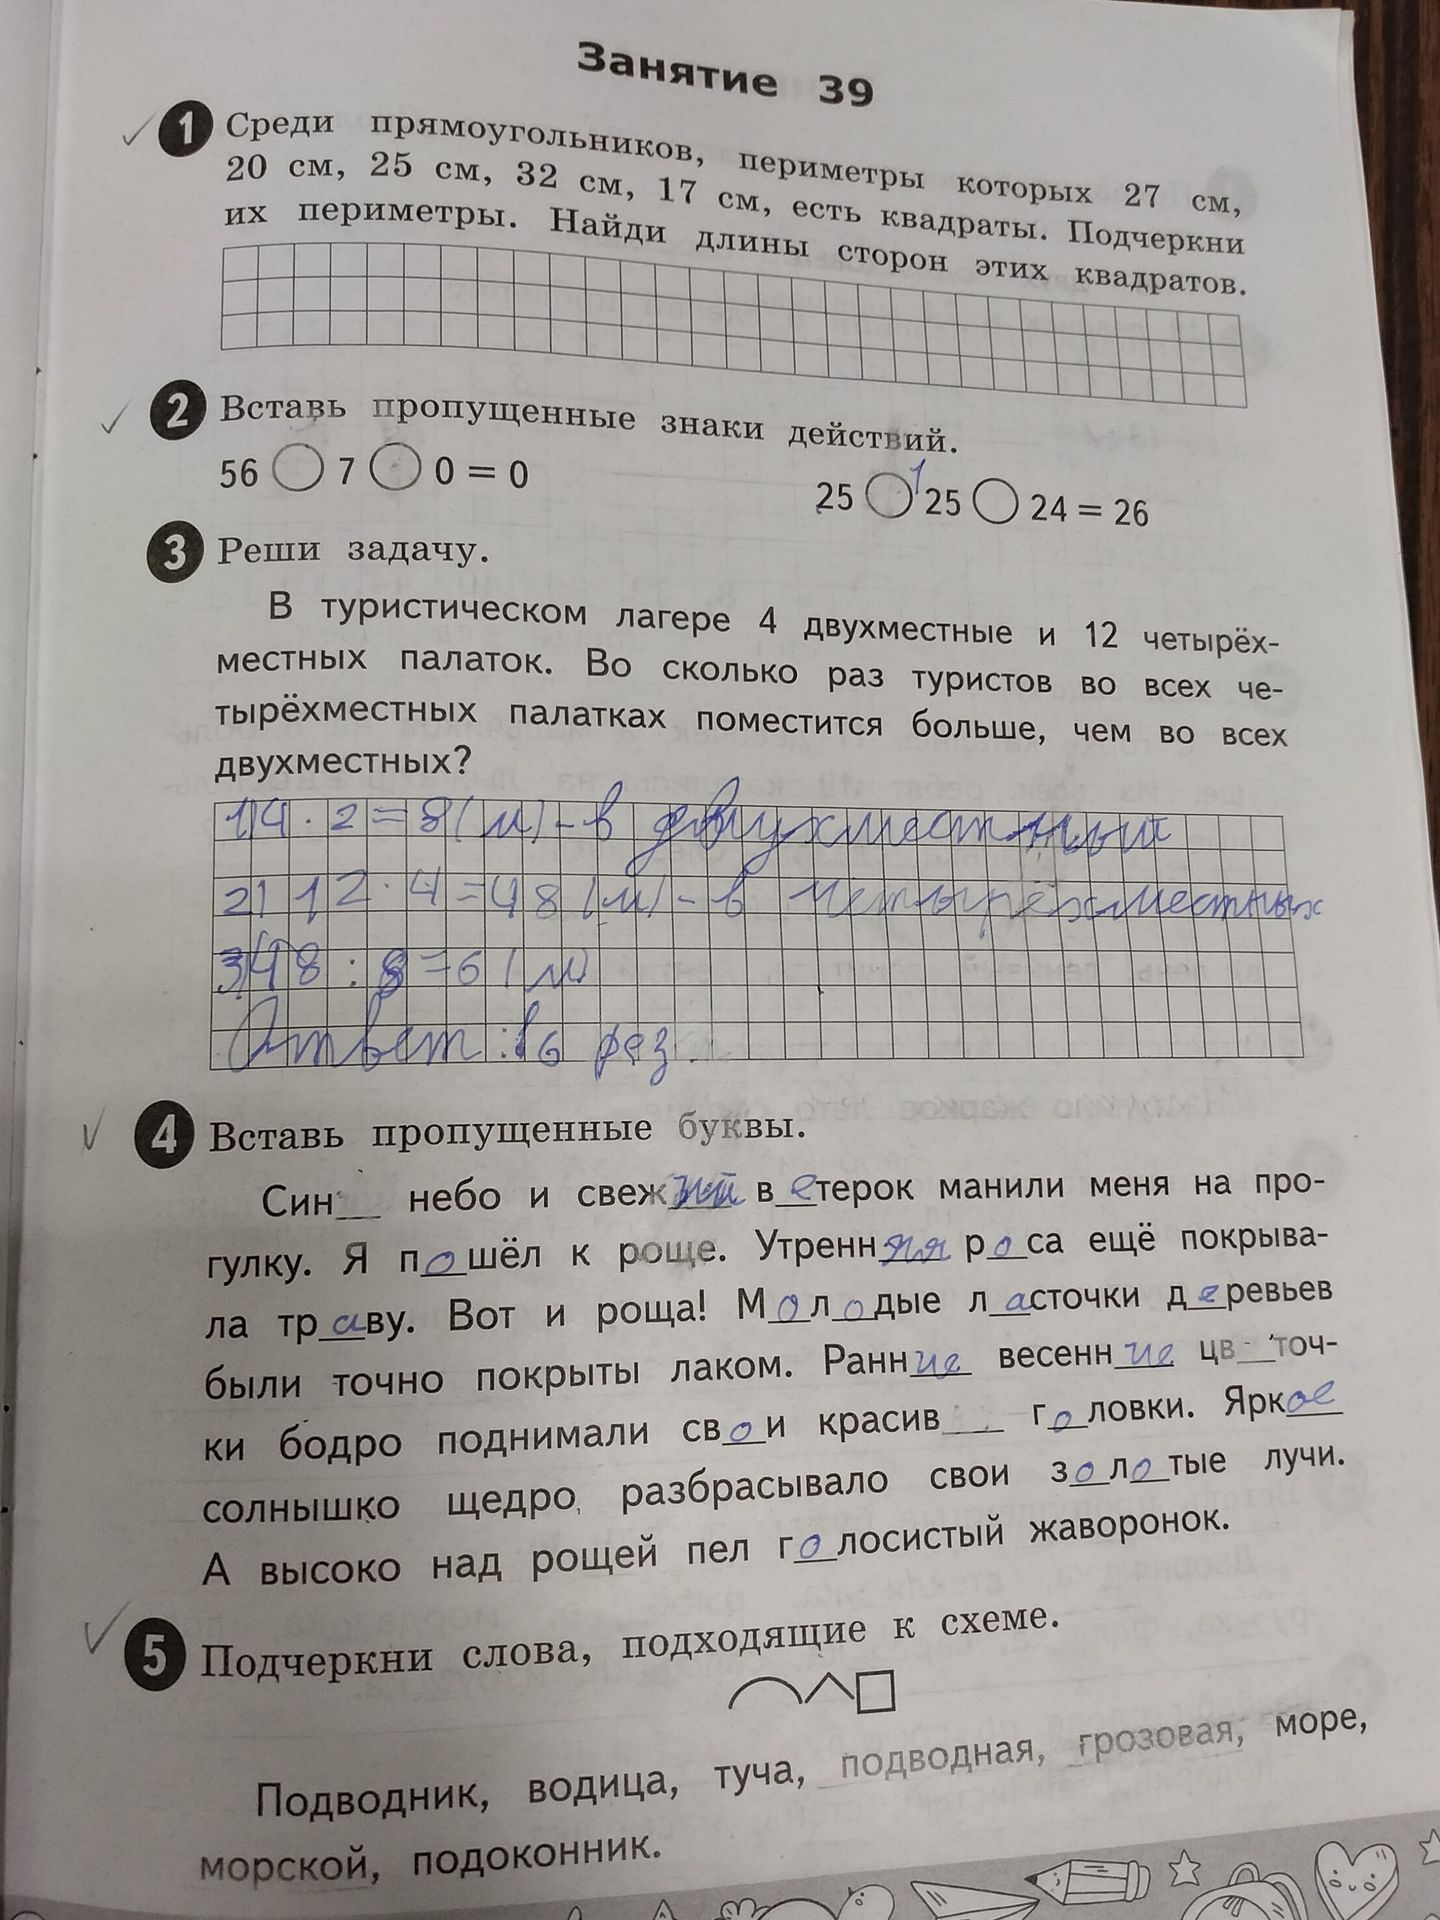 Занятие 39
1 Среди прямоугольников, периметры которых 27 см,
20 см, 25 см, 32 см, 17 см, есть квадраты. Подчеркни
их периметры. Найди длины сторон этих квадратов.
2 Вставь пропущенные знаки действий.
56 ◯ 7 ◯ 0 = 0 25 ◯ 25 ◯ 24 = 26
3 Реши задачу.
В туристическом лагере 4 двухместные и 12 четырёх-
местных палаток. Во сколько раз туристов во всех че-
тырёхместных палатках поместится больше, чем во всех
двухместных?
1) 4 · 2 = 8 (м) - в двухместный
2) 12 · 4 = 48 (м) - в четырёхместных
3) 48 : 8 = 6 (м)
Ответ: в 6 раз.
4 Вставь пропущенные буквы.
Син__ небо и свежий ветерок манили меня на про-
гулку. Я пошёл к роще. Утренняя роса ещё покрыва-
ла траву. Вот и роща! Молодые ласточки деревьев
были точно покрыты лаком. Ранние весенние цв_точ-
ки бодро поднимали свои красив__ головки. Яркое
солнышко щедро разбрасывало свои золотые лучи.
А высоко над рощей пел голосистый жаворонок.
5 Подчеркни слова, подходящие к схеме.
Подводник, водица, туча, подводная, грозовая, море,
морской, подоконник.